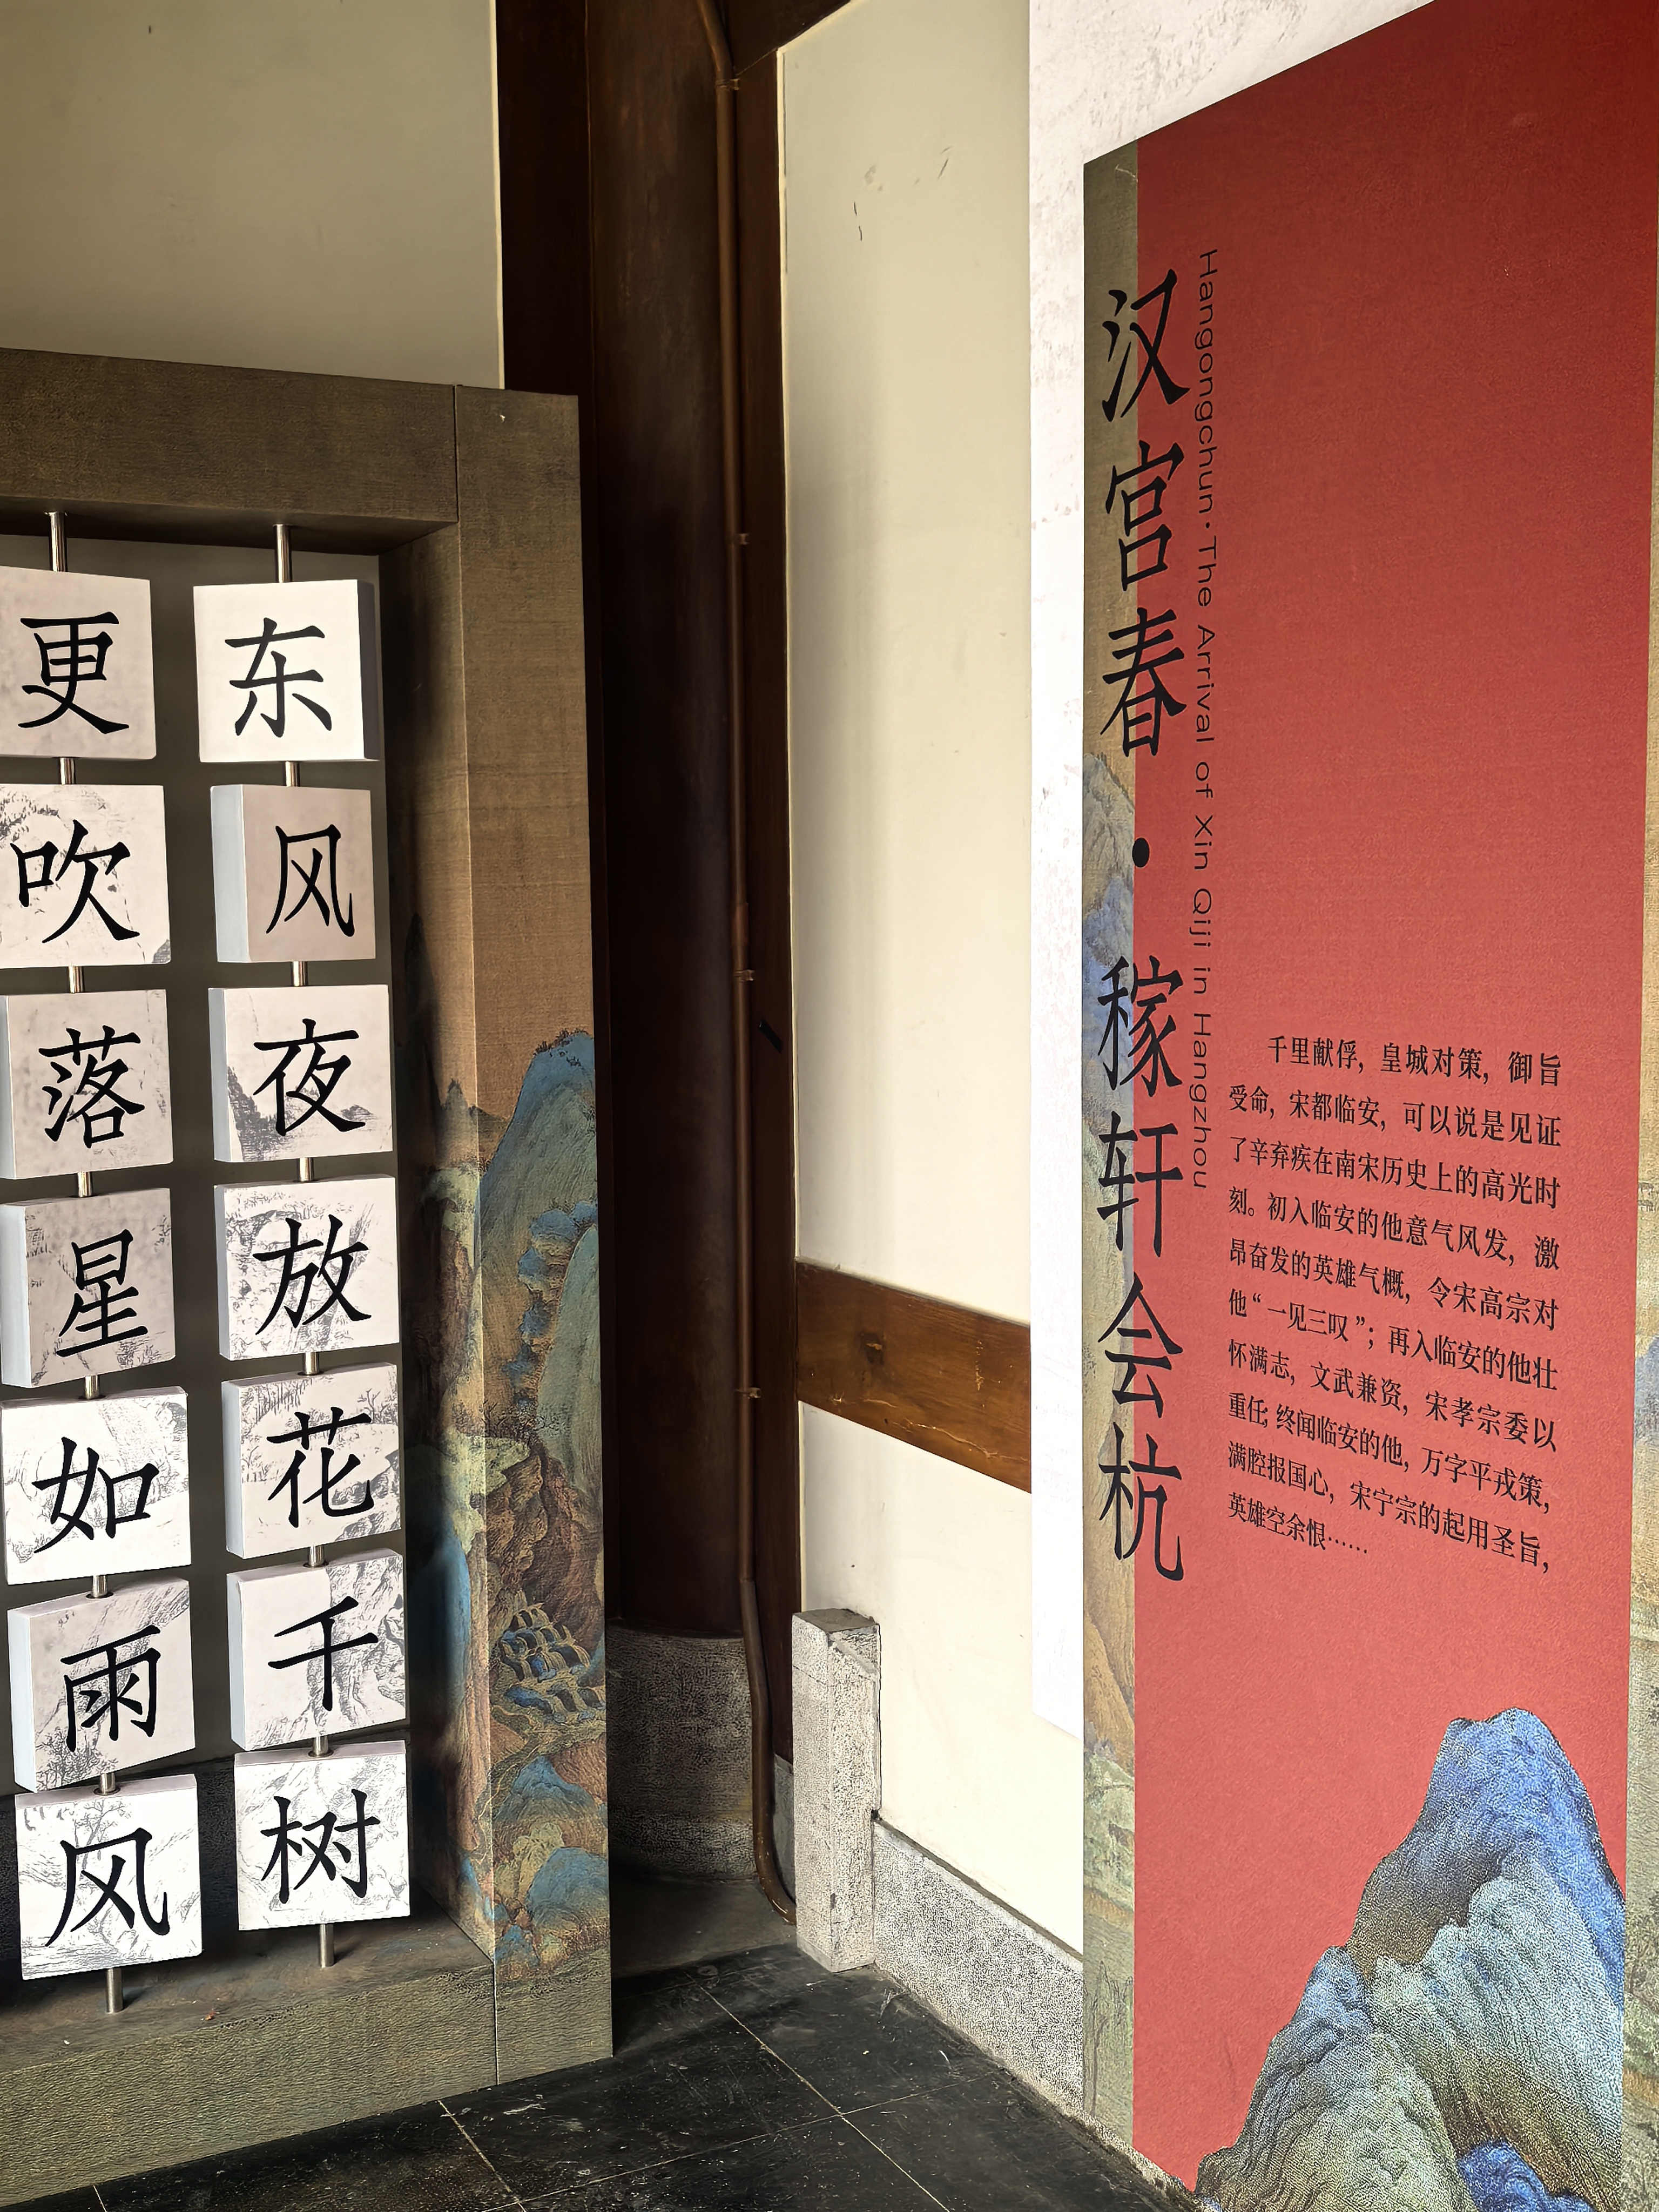 东风夜放花千树
更吹落星如雨风
汉宫春·稼轩会杭
Hangongchun·The Arrival of Xin Qiji in Hangzhou
千里献俘，皇城对策，御旨
受命，宋都临安，可以说是见证
了辛弃疾在南宋历史上的高光时
刻。初入临安的他意气风发，激
昂奋发的英雄气概，令宋高宗对
他“一见三叹”；再入临安的他壮
怀满志，文武兼资，宋孝宗委以
重任；终闻临安的他，万字平戎策，
满腔报国心，宋宁宗的起用圣旨，
英雄空余恨……